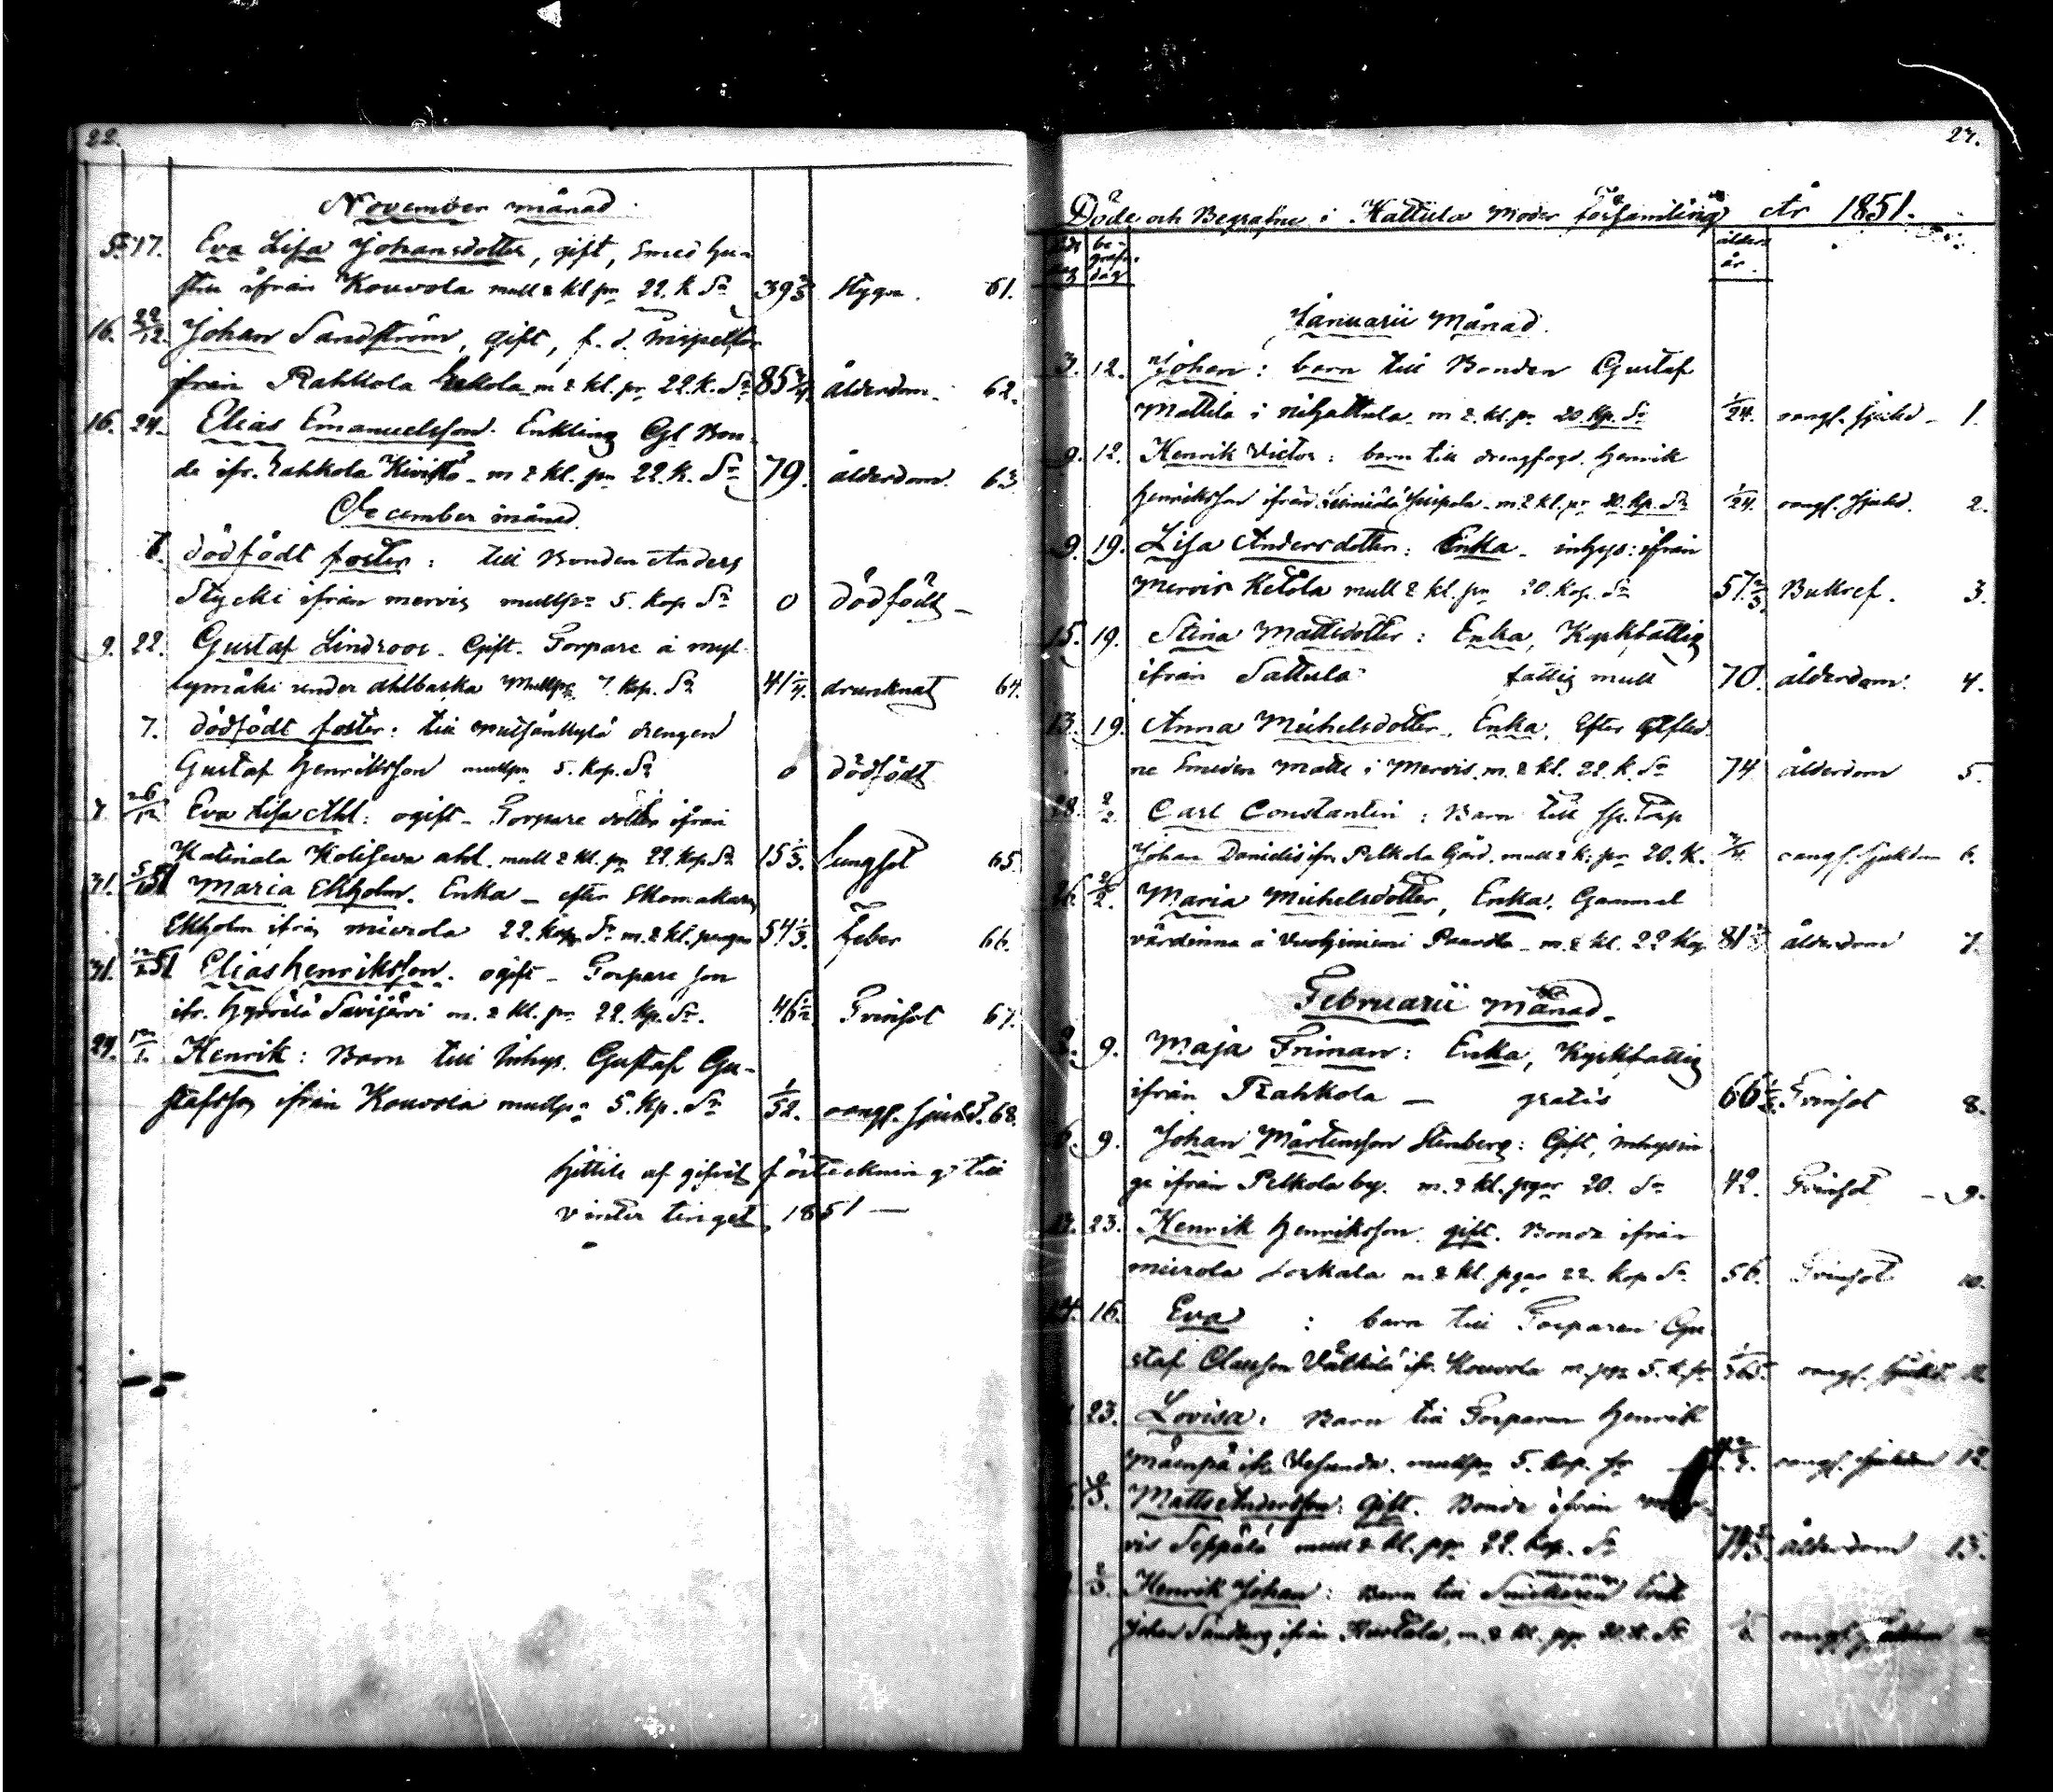 22.
November månad.
5. 17. Eva Lisa Johansdotter, gift, Smed hu-
stru ifrån Kouvola mull 2 kl. pn 22. k Sr 39 2/3 Stygn. 61.
16. 22/12. Johan Sandström, gift, f. d. inspektor
ifrån Rahkola m 2 kl. pr 22. k. Sr 85 3/4. ålderdom. 62.
16. 24. Elias Emanuelsson. Enkling Gl Bon-
de ifr. Rahkola Kivistö m 2 kl. pn 22. k. Sr 79. ålderdom. 63
December månad.
dödfödt foster: till Bonden Anders
Stycki ifrån mervis mullpn 5. kop Sr 0 dödfödt
9. 22. Gustaf Lindroos. Gift. Torpare å myl-
lymäki under Ahlbacka Mullpn 7. kop. Sr 41 1/4. drunknat 64.
7. dödfödt foster: till drengen
Gustaf Henriksson mullpn 5. kop. Sr 0 dödfödt
7. 26/12 Eva Lisa Ahl: ogift. Torpare dotter ifrån
Katinala ahl. mull 2 kl. pn 22. kop Sr 15 1/3. lungsot 65.
31. Maria Ekholm. Enka efter Skomakaren
Ekholm ifrån mierola 22. kop. Sr m. 2 kl. pngar 54 1/3. feber 66.
31. Elias Henriksson. ogift Torpare son
ifr. Hyrvälä Savijärvi m. 2 kl. pn 22. kp. Sr. 46 1/2. Tvinsot 67.
29. 12/1. Henrik: Barn till Inhys. Gustaf Gu-
stafsson ifrån Kouvola mullpn 5. kp. Sr 1/52. oangf. sjukd. 68.
hittils af gifvit förteckning till
vinter tinget 1851 —
23.
Döde och Begrafne i Hattula Moder församling År 1851.
be-
grafn.
dag
ålder
år.
Januarii Månad.
3. 12. Johan: barn till Bonden Gustaf
Mattila i Nihattula m 2. kl. pr 20 kp. Sr 1/24. oangf. sjukd 1.
9. 12. Henrik Victor: barn till drengfogd. Henrik
Henriksson ifrån m 2 kl. pr 20. kp. Sr 1/24. oangf. sjukd. 2.
9. 19. Lisa Andersdotter: Enka. inhys: ifrån
Mervis Ketola mull 2 kl. pn 20. kop. Sr 57 2/3. Bukref. 3.
15. 19. Stina Mattsdotter: Enka, Kyrkfattig
ifrån Sattula fattig mull 70. ålderdom. 4.
13. 19. Anna Michelsdotter. Enka, Efter aflid-
ne Smeden Matts i Mervis. m. 2 kl. 22. k. Sr 74 ålderdom 5.
28. 2/2. Carl Constantin: Barn till sp. Torp
Johan ifr. Pelkola Gård. mull 2 k. pr 20. k. 3/4. oangf. sjukdom 6.
26. 2/2. Maria Michelsdotter, Enka, Gammal
värdinna å Vuohiniemi Paavola m. 2 kl. 22 kop 81 ålderdom 7.
Februarii Månad.
9. Maja Friman: Enka, Kyrkfattig
ifrån Rahkola — gratis 66 Tvinsot 8.
6. 9. Johan Mårtensson Stenberg: Gift, inhysin-
ge ifrån Pelkola by. m. 2 kl. pngar 20. Sr 42. Tvinsot 9.
23. Henrik Henriksson. gift. Bonde ifrån
mierola m 2 kl. pngar 22. kop Sr 56. Tvinsot 10.
14. 16. Eva : barn till Torparen Gu-
staf Claesson Välkilä ifr. Kouvola m. pngr 5. k. sr 1/365. oangf. sjukd. 11.
23. Lovisa: Barn till Torparen Henrik
Mäenpä ifr. Vesunda. mullpn 5. kop. sr oangf. sjukdom 12.
Matts Andersson: gift. Bonde ifrån mer-
vis Seppälä mull 2 kl. pgr 22. kop. Sr ålderdom 13.
2/3. Henrik Johan: Barn till Snickaren
Johan Sandberg ifrån Hurtala, m. 2 kl. pgr 20. k. Sr